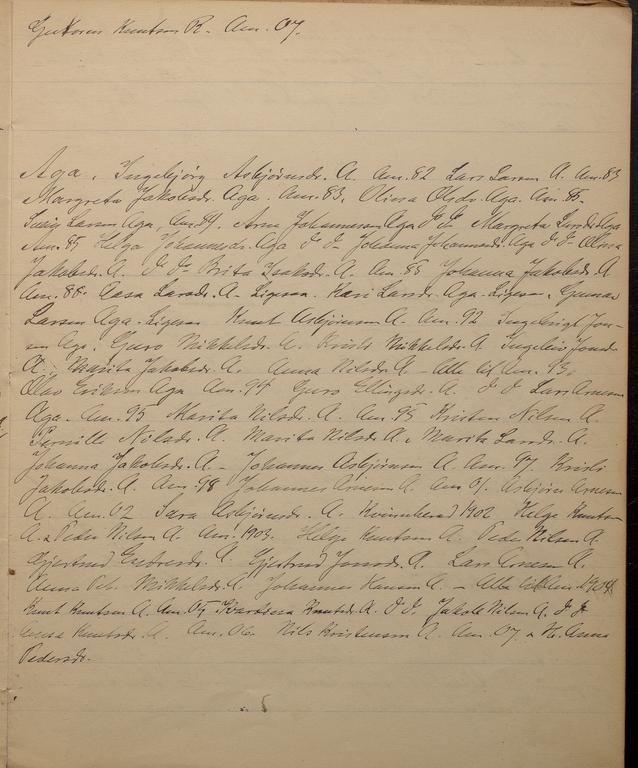 Guttorm Knutson R. Am. 07.
Aga. Ingebjörg Asbjörnsdr. A. Am. 82 Lars Larsen A. Am. 83
Margreta Jakobsdr. Aga. Am. 83, Olina Olsdr. Aga. Am. 85.
Larsen Aga, Am. 84. Arne Johannesson Aga Margreta Larsdr. Aga
Am. 85 Helga Johannesdr. Aga Johanna Johannesdr. Aga Olina
Jakobsdr. A. Brita Isaksdr. A. Am. 85 Johanna Jakobsdr. A
Am. 88. Aasa Larsdr. A. Ligesaa. Kari Larsdr. Aga. Ligesaa, Gunnar
Larsen Aga. Ligesaa Knut Asbjörnson A. Am. 92 Ingebrigt Jon-
son Aga. Guro Mikkelsdr. A. Kristi Mikkelsdr. A. Jonsdr.
A. Marita Jakobsdr. A. Anna Nilsdr. A. – Alle til Am. 93.
Olav Erikson Aga Am. 94 Guro Ellingsdr. A. Lars Arneson
Aga. Am. 95 Marita Nilsdr. A. Am. 95 Kristen Nilsen A.
Pernille Nilsdr. A. Marita Nilsdr. A. Marita Larsdr. A.
Johanna Jakobsdr. A. – Johannes Asbjörnson A. Am. 97. Kristi
Jakobsdr. A. Am. 98 Johannes Arneson A. Am 01. Asbjörn Arneson
A. Am. 02 Sara Asbjörnsdr. A. Kvinnherad 1902 Helge Knutson
A. & Peder Nilsen A. Am. 1903. Helge Knutson A. Peder Nilsen A.
Gjertrud A. Gjertrud Jonsdr. A. Lars Arneson A.
Anna Mikkelsdr. A. Johannes Hanson A. – Alle til Am. 1904.
Knut Knutson A. Am. 04 Knutsdr. A. Jakob Nilsen A.
Knutsdr. A. Am. 06. Nils Kristenson A. Am. 07. & H. Anna
Pedersdr.